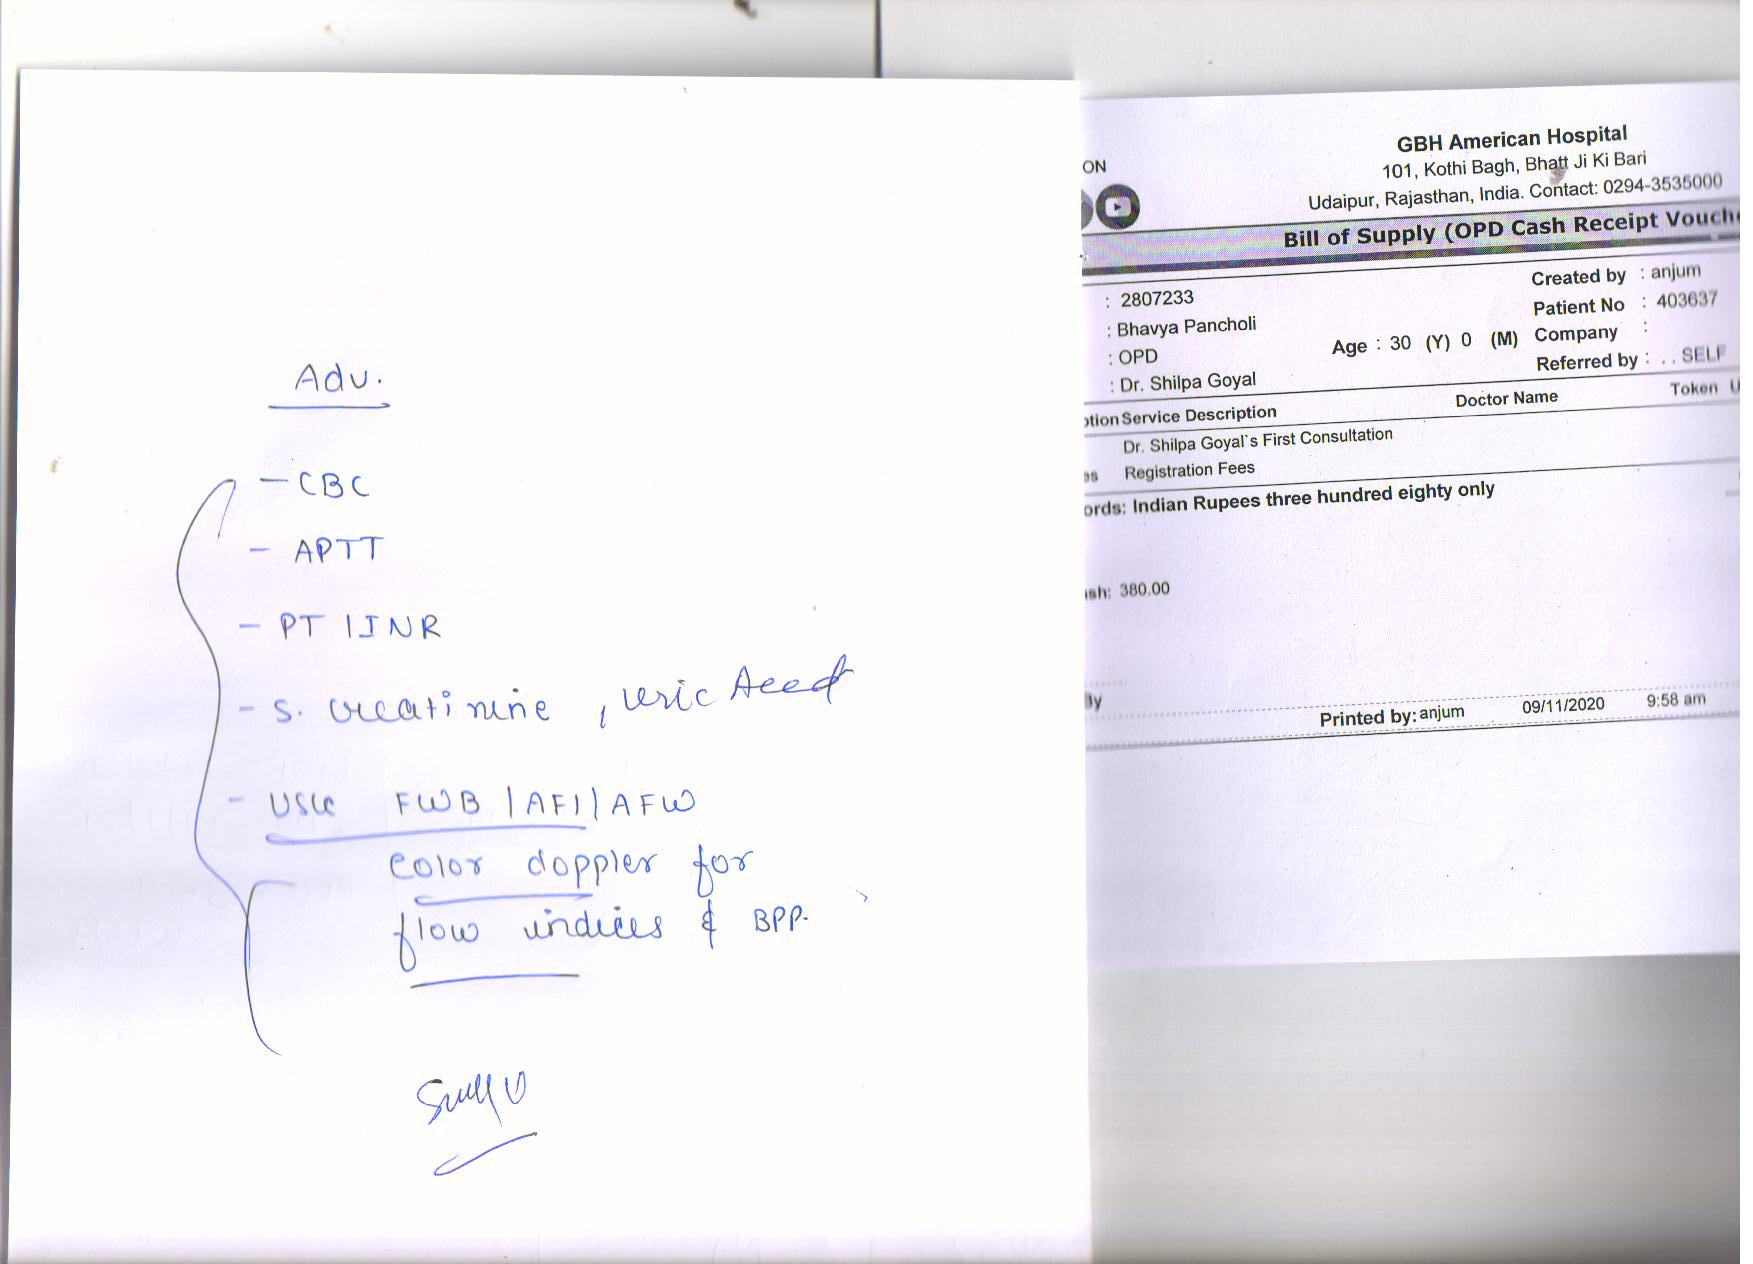 Adv.
- CBC
- APTT
- PT | INR
- S. creatinine, uric Acid
- USG FWB | AFI | AFW
color doppler for
flow indices & BPP.
ON
GBH American Hospital
101, Kothi Bagh, Bhatt Ji Ki Bari
Udaipur, Rajasthan, India. Contact: 0294-3535000
Bill of Supply (OPD Cash Receipt Vouch
: 2807233
Created by : anjum
: Bhavya Pancholi
Patient No : 403637
: OPD
Age : 30 (Y) 0 (M)
Company :
: Dr. Shilpa Goyal
Referred by : . . SELF
ption Service Description Doctor Name Token U
Dr. Shilpa Goyal`s First Consultation
es Registration Fees
ords: Indian Rupees three hundred eighty only
ash: 380.00
By
Printed by: anjum 09/11/2020 9:58 am